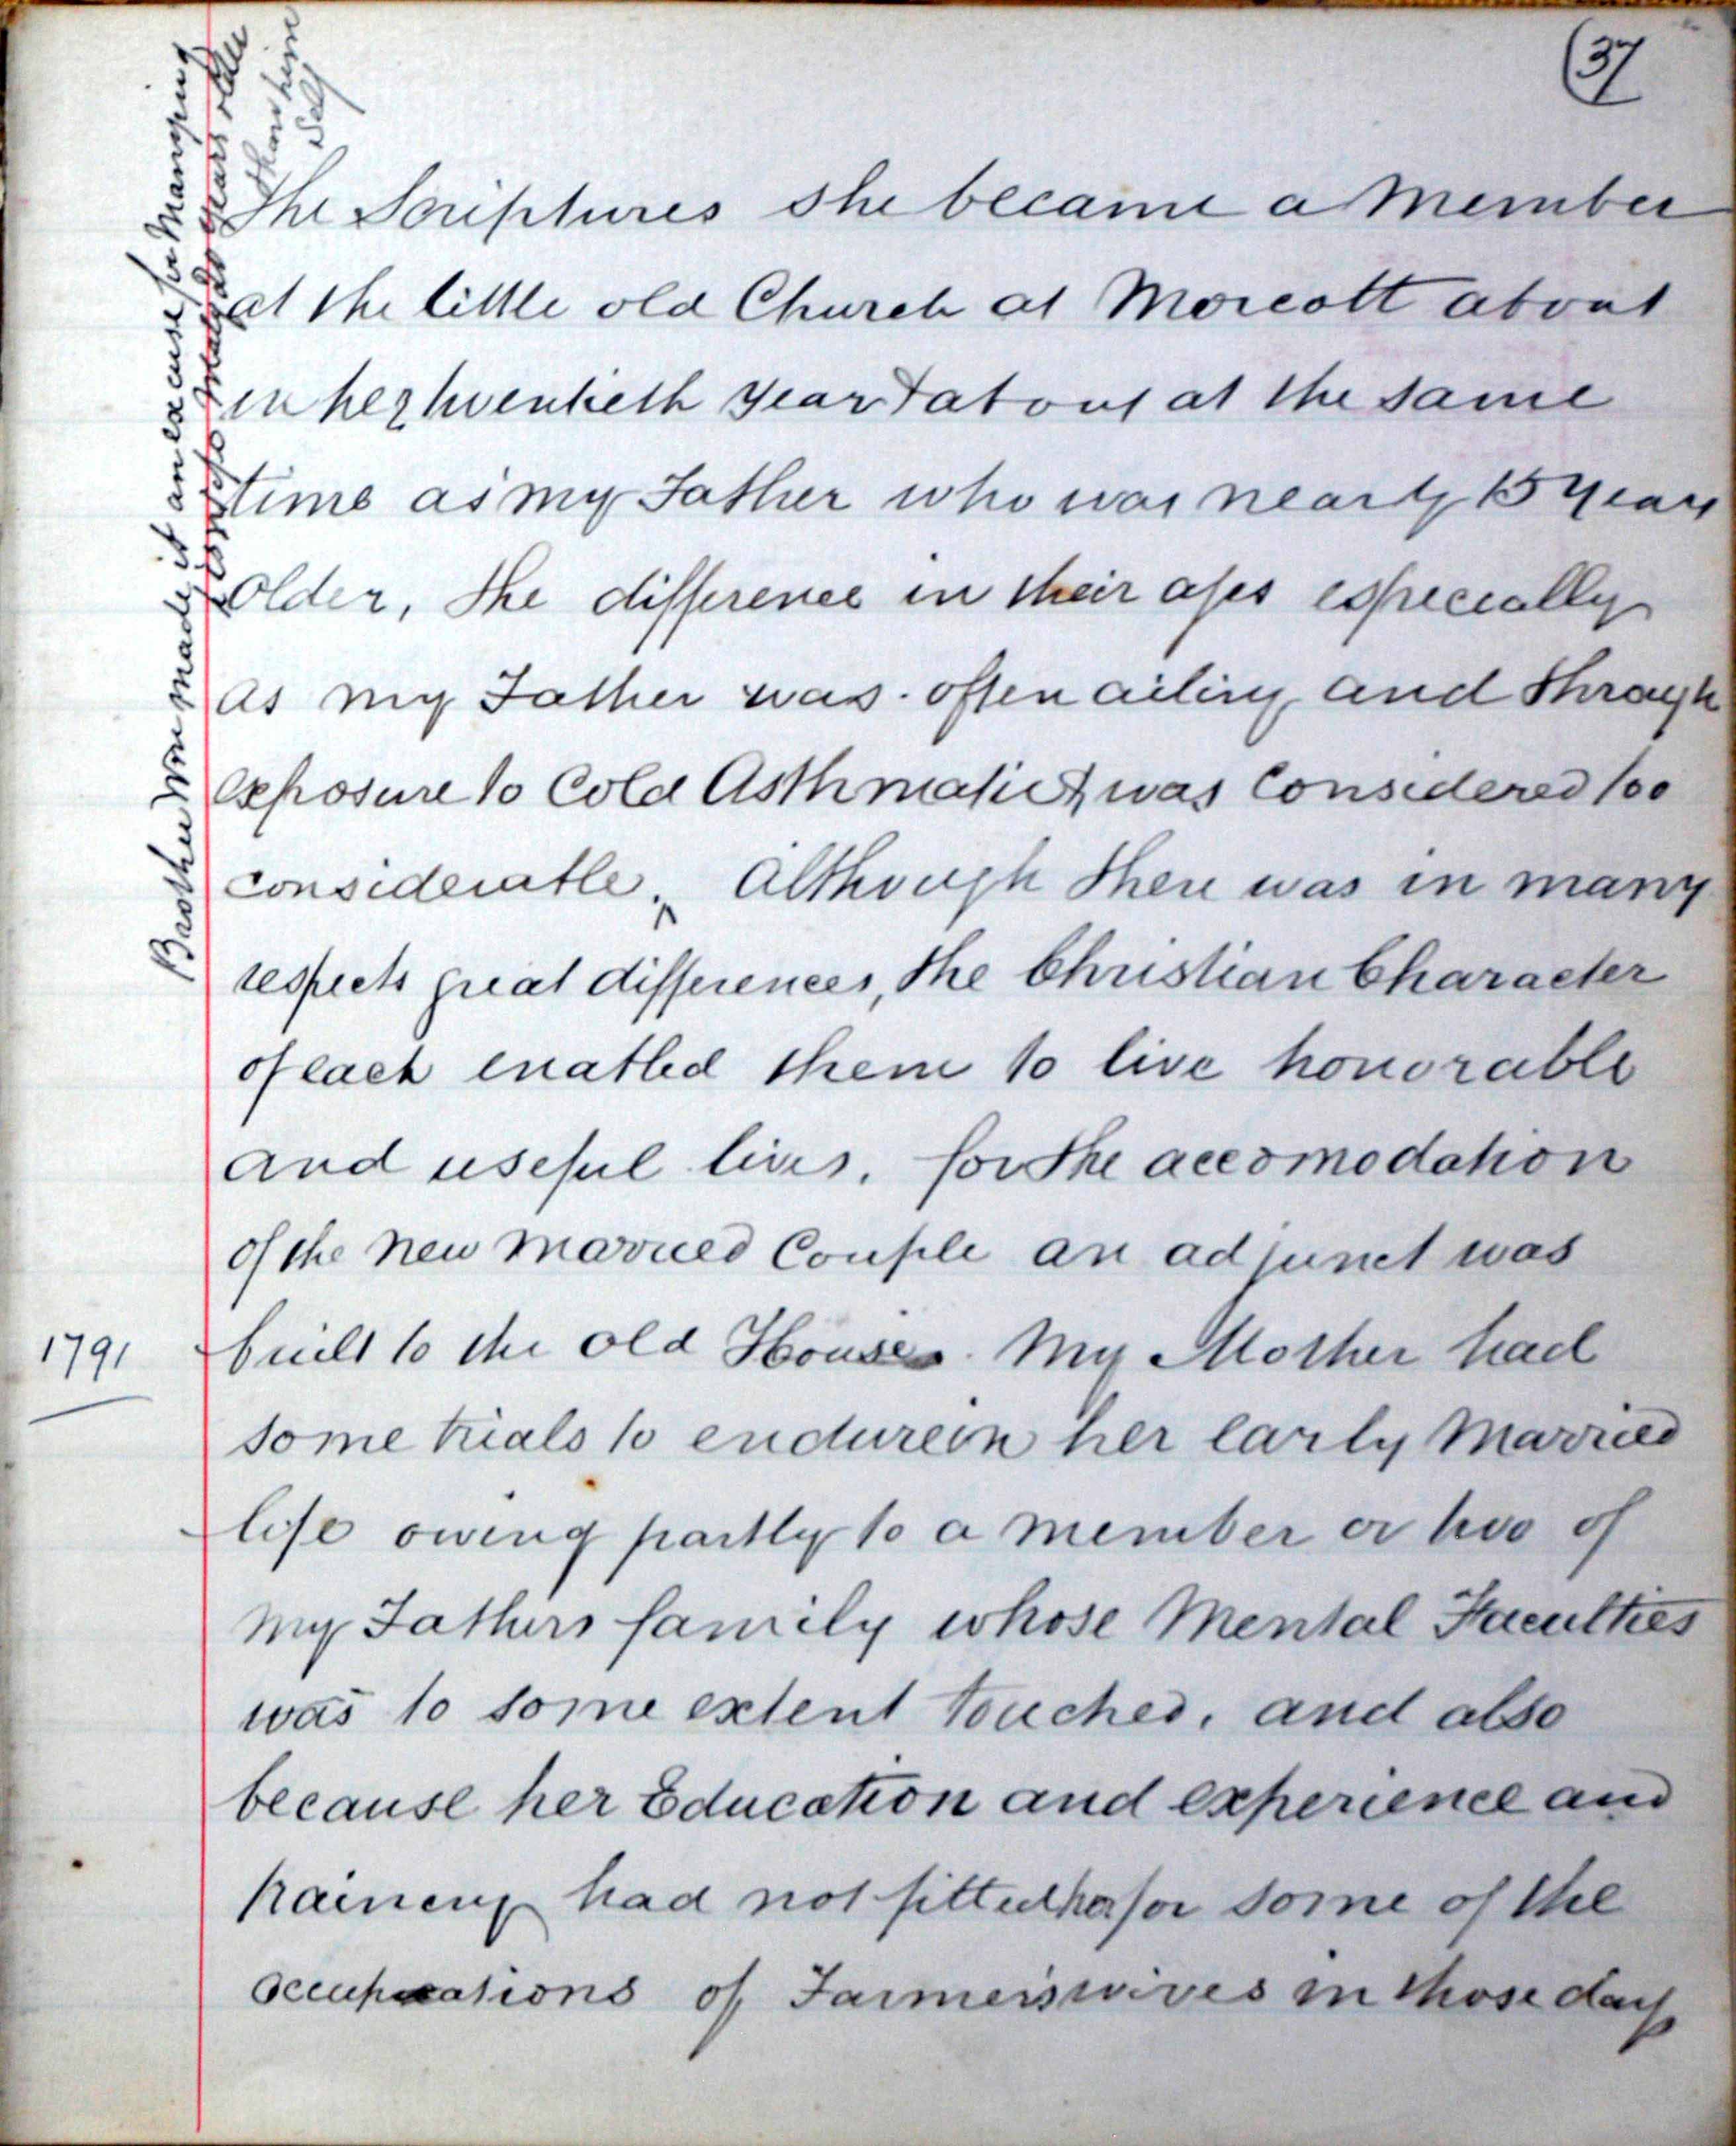 (37
The Scriptures she became a Member
at the little old Church at Morcott about
in her twentieth year & about at the same
time as my Father who was nearly 15 years
older, the difference in their ages especially
as my Father was often ailing and through
exposure to Cold Asthmatic & was Considered too
considerable. Although there was in many
respects great differences, the Christian Character
of each enabled them to live honorable
and useful lives. for the accomodation
of the new Married Couple an adjunct was
1791
built to the old House. My Mother had
some trials to endure in her early Married
life owing partly to a member or two of
my Fathers family whose Mental Faculties
was to some extent touched, and also
because her Education and experience and
training had not fitted her for some of the
occupations of Farmers wives in those days
Brother Wm made it an excuse for Marrying
years older
than him
self